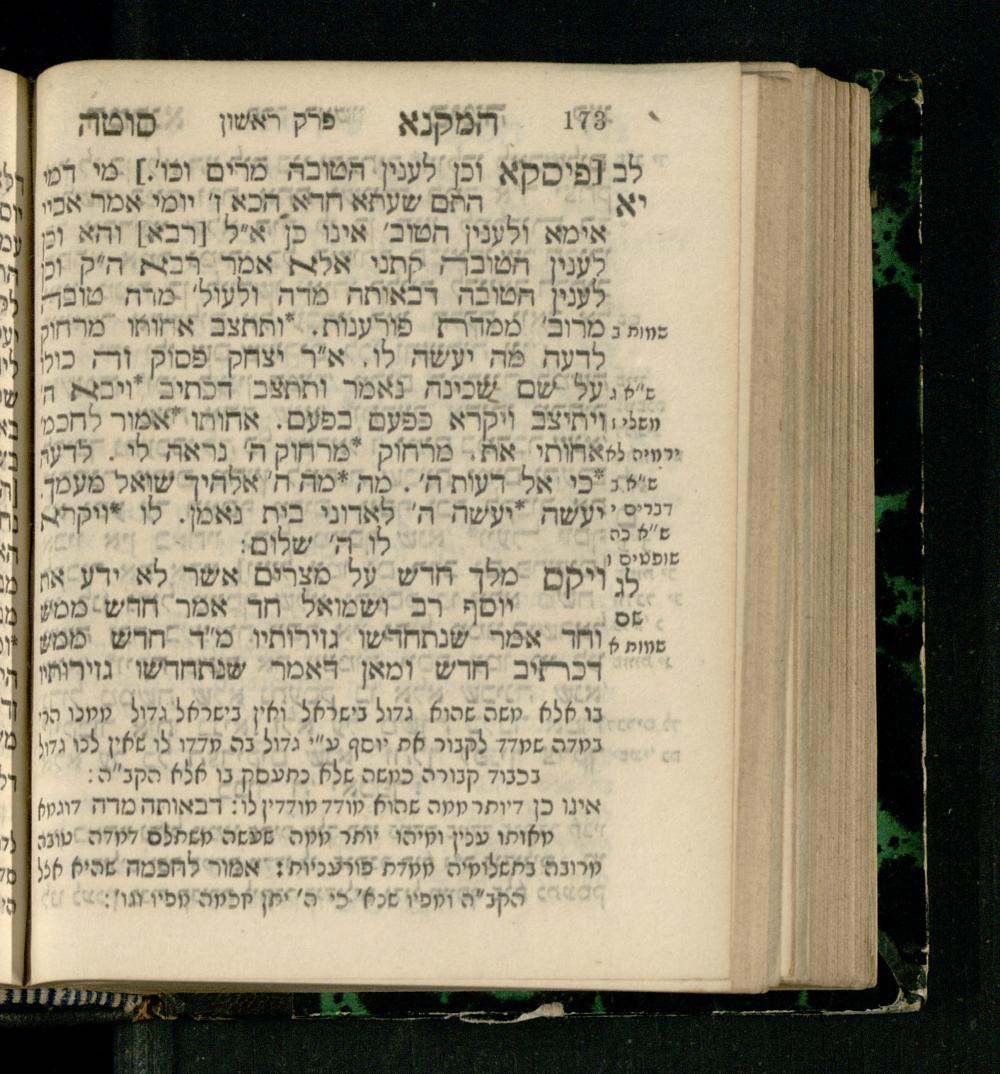 173 המקנא פרק ראשון סוטה
לב [פיסקא וכן לענין הטובה מרים וכו'.] מי דמי
יא התם שעתא חדא הכא ז' יומי אמר אביי
אימא ולענין הטוב' אינו כן א"ל [רבא] והא וכן
לענין הטובה קתני אלא אמר רבא ה"ק וכן
לענין הטובה דבאותה מדה ולעול' מדה טובה
שמות ב מרוב' ממדת פורענות. *ותתצב אחותו מרחוק
לדעה מה יעשה לו. א"ר יצחק פסוק זה כולו
ש"א ג על שם שכינה נאמר ותתצב דכתיב *ויבא ה'
משלי ז ויתיצב ויקרא כפעם בפעם. אחותו *אמור לחכמ'
ירמיה לא אחותי את. מרחוק *מרחוק ה' נראה לי. לדעה
ש"א ב *כי אל דעות ה'. מה *מה ה' אלהיך שואל מעמך.
דברים י יעשה *יעשה ה' לאדוני בית נאמן. לו *ויקרא
ש"א כה לו ה' שלום:
שופטים ו
לג ויקם מלך חדש על מצרים אשר לא ידע את
שם יוסף רב ושמואל חד אמר חדש ממש
שמות א וחד אמר שנתחדשו גזירותיו מ"ד חדש ממש
דכתיב חדש ומאן דאמר שנתחדשו גזירותיו
בו אלא משה שהוא גדול בישראל ואין בישראל גדול ממנו הרי
במדה שמדד לקבור את יוסף ע"י גדול בה מדדו לו שאין לכו גדול
בכבוד קבורה כמשה שלא נתעסק בו אלא הקב"ה:
אינו כן דיותר ממה שהוא מודד מודדין לו: דבאותה מדה דוגמא
מאותו ענין ומיהו יותר ממה שעשה משתלם דמדה טובה
מרובה בתשלומיה ממדת פורענית: אמור לחכמה שהיא אצל
הקב"ה ומפיו שנא' כי ה' יתן חכמה מפיו וגו':